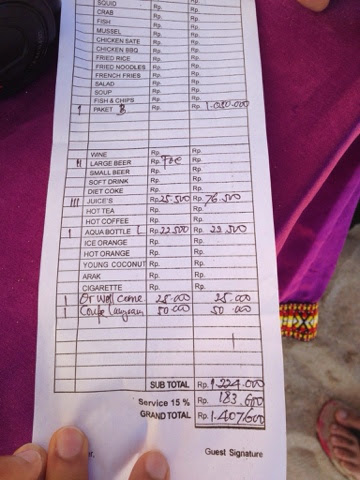 SQUID Rp. Rp.
CRAB Rp. Rp.
FISH Rp. Rp.
MUSSEL Rp. Rp.
CHICKEN SATE Rp. Rp.
CHICKEN BBQ Rp. Rp.
FRIED RICE Rp. Rp.
FRIED NOODLES Rp. Rp.
FRENCH FRIES Rp. Rp.
SALAD Rp. Rp.
SOUP Rp. Rp.
FISH & CHIPS Rp. Rp.
1 PAKET B Rp. Rp. 1.080.000
WINE Rp. Rp.
II LARGE BEER Rp. Foc Rp.
SMALL BEER Rp. Rp.
SOFT DRINK Rp. Rp.
DIET COKE Rp. Rp.
III JUICE'S Rp. 25.500 Rp. 76.500
HOT TEA Rp. Rp.
HOT COFFEE Rp. Rp.
1 AQUA BOTTLE L Rp. 22.500 Rp. 22.500
ICE ORANGE Rp. Rp.
HOT ORANGE Rp. Rp.
YOUNG COCONUT Rp. Rp.
ARAK Rp. Rp.
CIGARETTE Rp. Rp.
1 25.000 25.000
1 50.000 50.000
SUB TOTAL Rp. 1.224.000
Service 15 % Rp. 183.600
GRAND TOTAL Rp. 1.407.600
Guest Signature